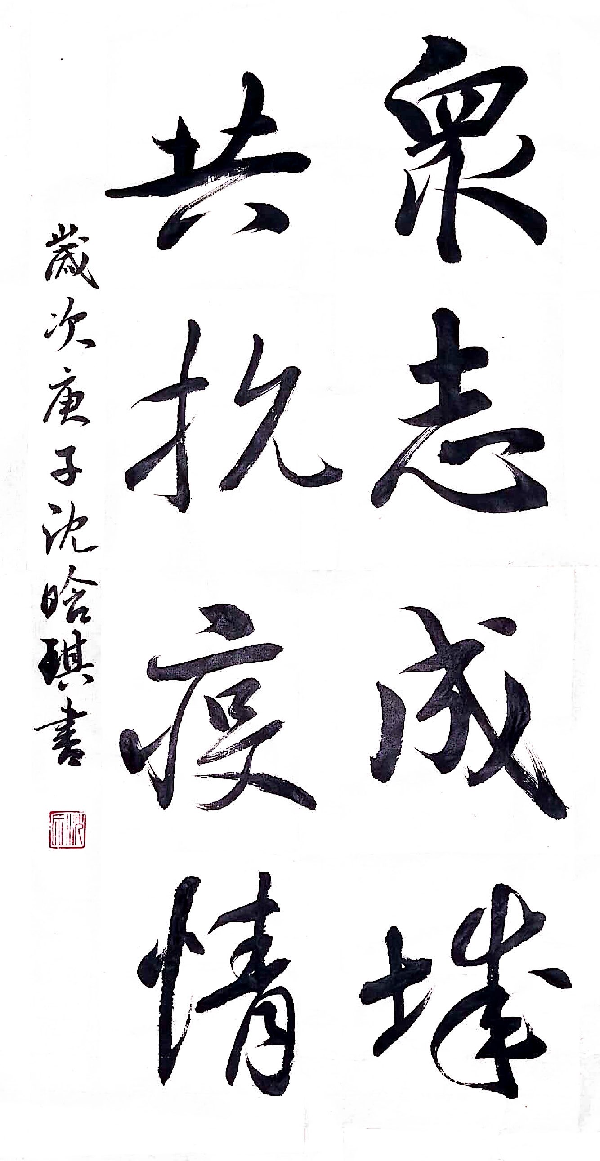 衆志成城
共抗疫情
歲次庚子沈晗琪書